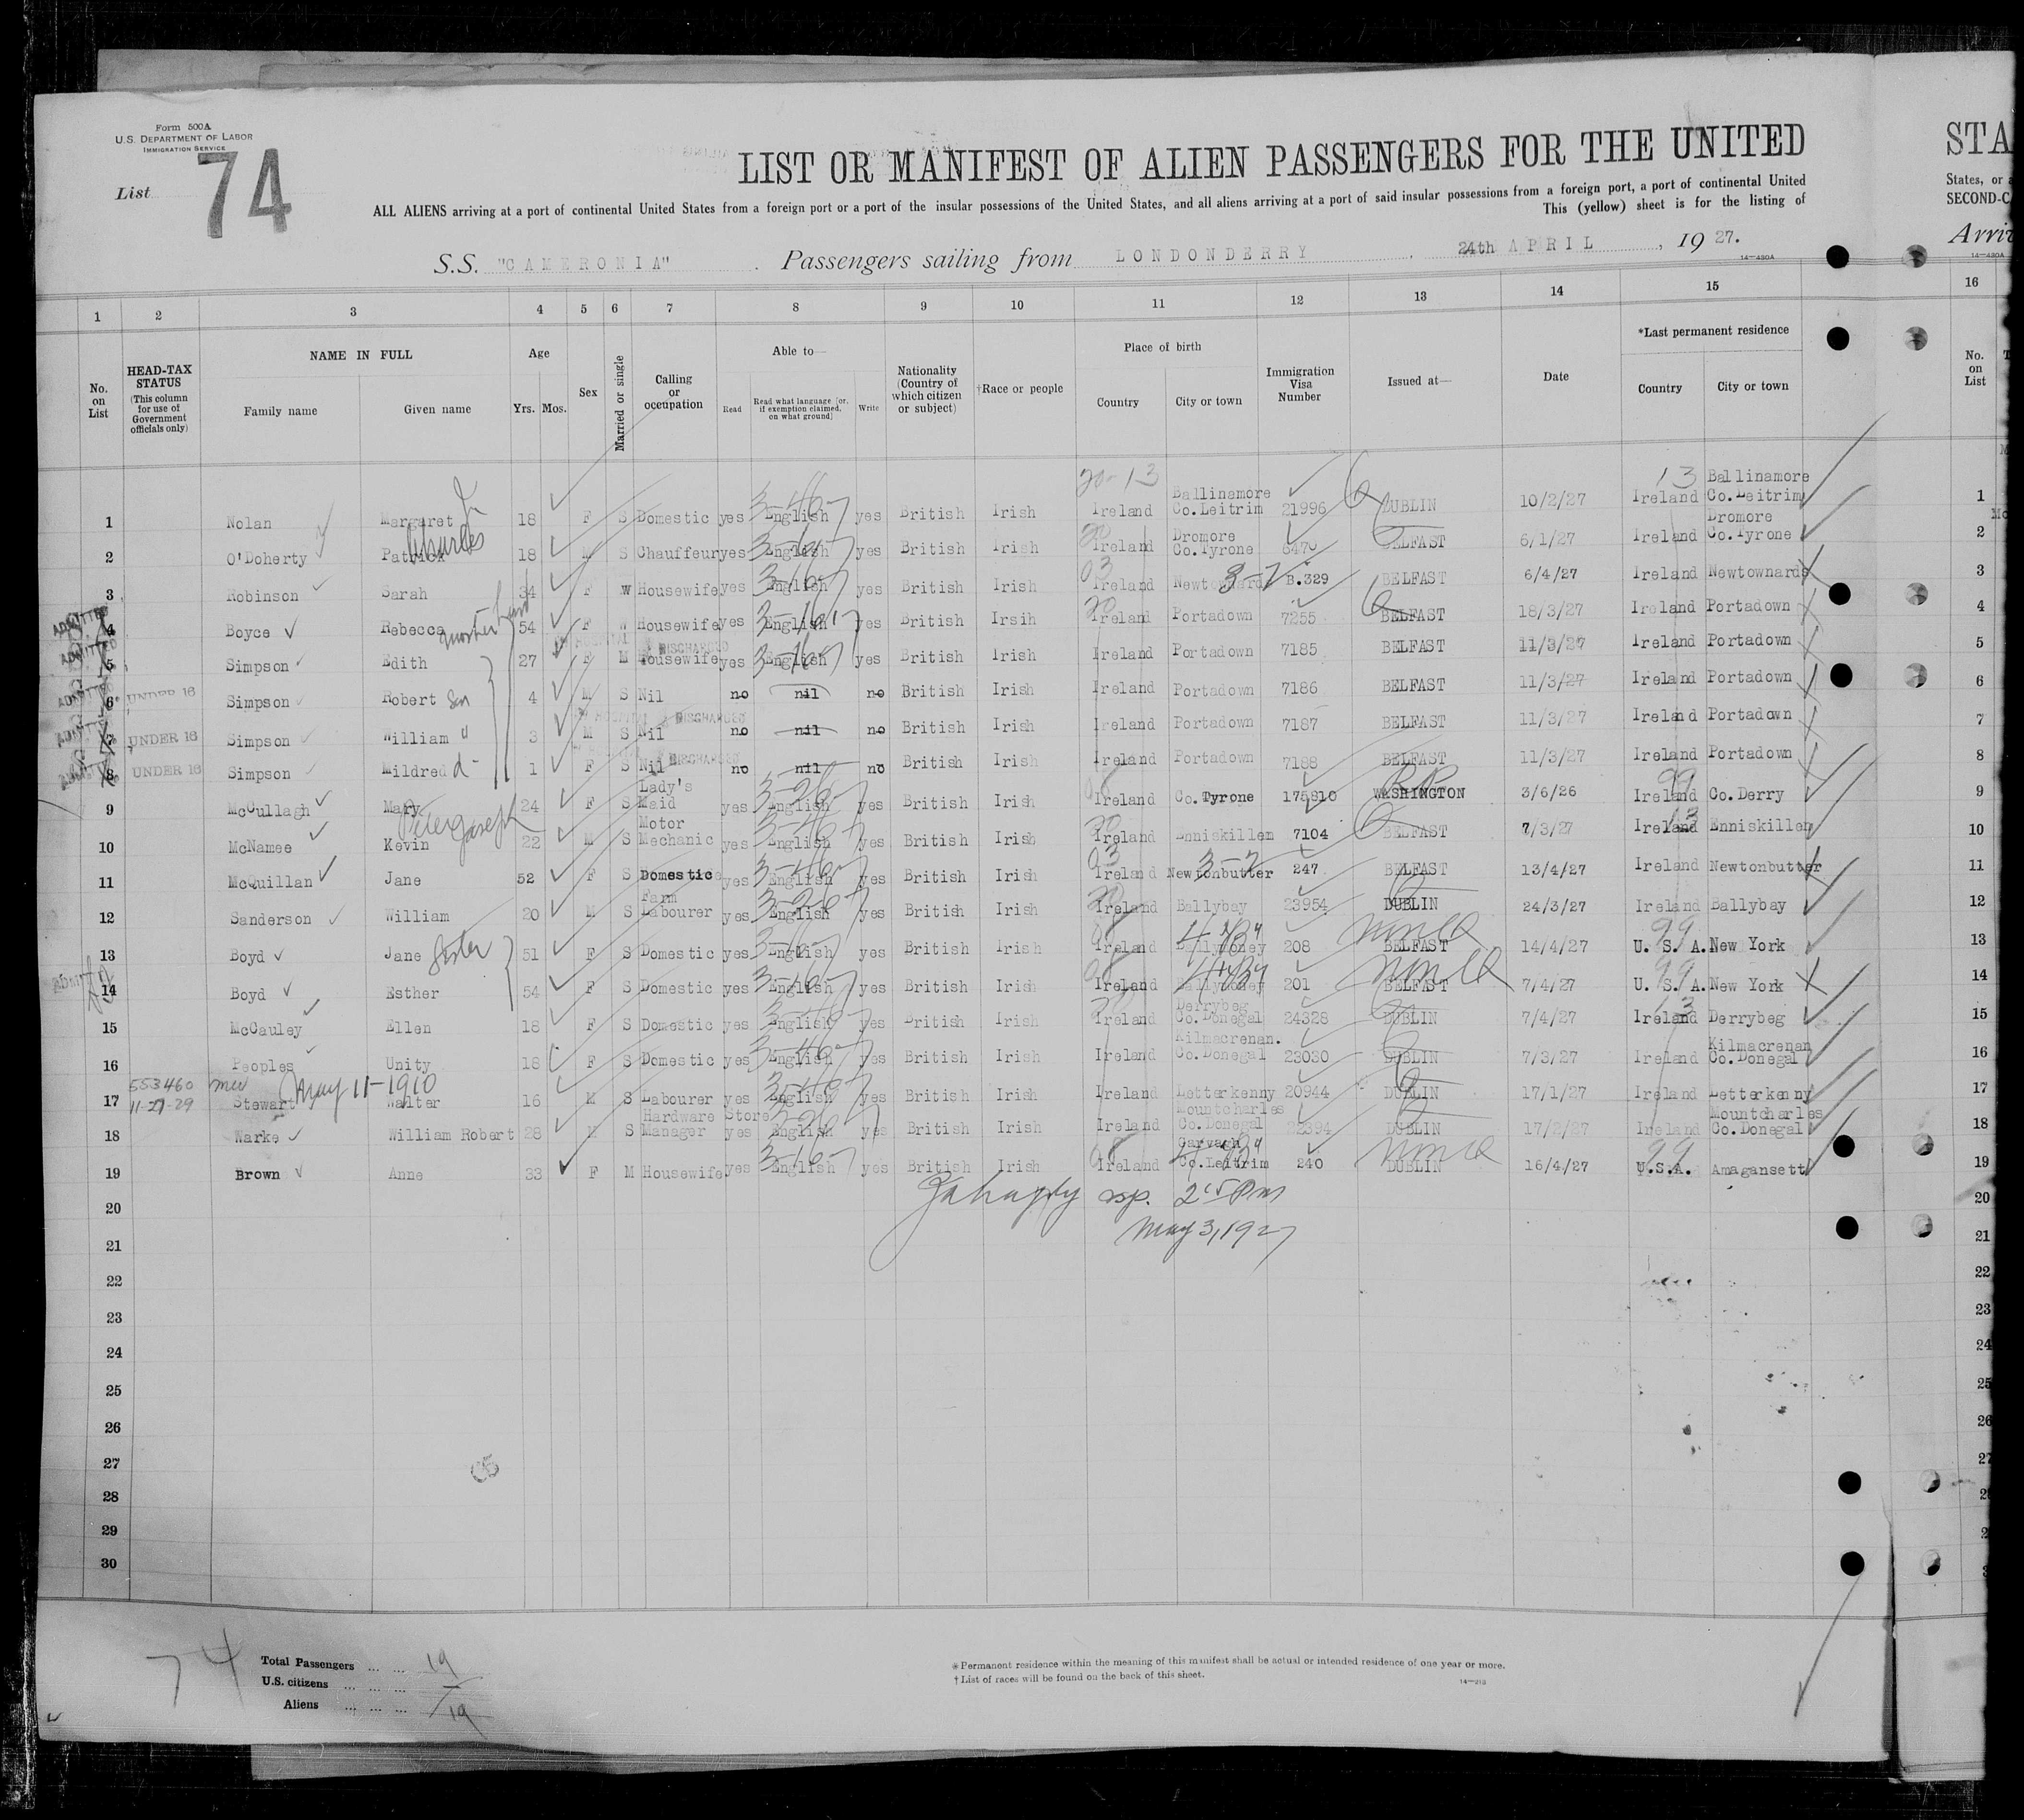 Form 500A
U.S. DEPARTMENT OF LABOR
IMMIGRATION SERVICE
List 74
LIST OR MANIFEST OF ALIEN PASSENGERS FOR THE UNITED
STA
ALL ALIENS arriving at a port of continental United States from a foreign port or a port of the insular possessions of the United States, and all aliens arriving at a port of said insular possessions from a foreign port, a port of continental United
States, or a
This (yellow) sheet is for the listing of
SECOND-C
S.S. "CAMERONIA" . Passengers sailing from LONDONDERRY , 24th APRIL , 1927.
Arriv
14—430A
14—430A
1 2 3 4 5 6 7 8 9 10 11 12 13 14 15 16
No. on List
HEAD-TAX STATUS (This column for use of Government officials only)
NAME IN FULL
Family name
Given name
Age
Yrs. Mos.
Sex
Married or single
Calling or occupation
Able to—
Read
Read what language [or, if exemption claimed, on what ground]
Write
Nationality (Country of which citizen or subject)
†Race or people
Place of birth
Country
City or town
Immigration Visa Number
Issued at—
Date
*Last permanent residence
Country
City or town
No. on List
20-13 13
1 Nolan Margaret 18 F S Domestic yes English yes British Irish Ireland Ballinamore Co.Leitrim 21996 DUBLIN 10/2/27 Ireland Ballinamore Co.Leitrim 1
2 O'Doherty Patrick Charles 18 M S Chauffeur yes English yes British Irish Ireland Dromore Co.Tyrone 6470 BELFAST 6/1/27 Ireland Dromore Co.Tyrone 2
3 Robinson Sarah 34 F W Housewife yes English yes British Irish Ireland Newtownards B.329 BELFAST 6/4/27 Ireland Newtownards 3
ADMITTED 4 Boyce Rebecca 54 F W Housewife yes English yes British Irsih Ireland Portadown 7255 BELFAST 18/3/27 Ireland Portadown 4
ADMITTED 5 Simpson Edith 27 F M Housewife yes English yes British Irish Ireland Portadown 7185 BELFAST 11/3/27 Ireland Portadown 5
DISCHARGED
ADMITTED 6 UNDER 16 Simpson Robert Son 4 M S Nil no nil no British Irish Ireland Portadown 7186 BELFAST 11/3/27 Ireland Portadown 6
IN HOSPITAL DISCHARGED
ADMITTED 7 UNDER 16 Simpson William " 3 M S Nil no nil no British Irish Ireland Portadown 7187 BELFAST 11/3/27 Ireland Portadown 7
DISCHARGED
8 UNDER 16 Simpson Mildred d- 1 F S Nil no nil no British Irish Ireland Portadown 7188 BELFAST 11/3/27 Ireland Portadown 8
9 McCullagh Mary 24 F S Lady's Maid yes English yes British Irish Ireland Co.Tyrone 175910 WASHINGTON 3/6/26 Ireland Co.Derry 9
10 McNamee Kevin Peter Joseph 22 M S Motor Mechanic yes English yes British Irish Ireland Enniskillen 7104 BELFAST 7/3/27 Ireland Enniskillen 10
11 McQuillan Jane 52 F S Domestic yes English yes British Irish Ireland Newtonbutter 247 BELFAST 13/4/27 Ireland Newtonbutter 11
12 Sanderson William 20 M S Farm Labourer yes English yes British Irish Ireland Ballybay 23954 DUBLIN 24/3/27 Ireland Ballybay 12
13 Boyd Jane Sister 51 F S Domestic yes English yes British Irish Ireland Ballymoney 208 BELFAST 14/4/27 U. S. A. New York 13
14 Boyd Esther 54 F S Domestic yes English yes British Irish Ireland Ballymoney 201 BELFAST 7/4/27 U. S. A. New York 14
15 McCauley Ellen 18 F S Domestic yes English yes British Irish Ireland Derrybeg Co.Donegal 24328 DUBLIN 7/4/27 Ireland Derrybeg 15
16 Peoples Unity 18 F S Domestic yes English yes British Irish Ireland Kilmacrenan. Co.Donegal 23030 DUBLIN 7/3/27 Ireland Kilmacrenan Co.Donegal 16
553460 May 11-1910
17 11-27-29 Stewart Walter 16 M S Labourer yes English yes British Irish Ireland Letterkenny 20944 DUBLIN 17/1/27 Ireland Letterkenny 17
18 Warke William Robert 28 M S Hardware Store Manager yes English yes British Irish Ireland Mountcharles Co.Donegal 22394 DUBLIN 17/2/27 Ireland Mountcharles Co.Donegal 18
19 Brown Anne 33 F M Housewife yes English yes British Irish Ireland Garvagh Co.Leitrim 240 DUBLIN 16/4/27 U.S.A. Amagansett 19
20 insp. 2 15 Pm 20
21 May 3, 1927 21
22 22
23 23
24 24
25 25
26 26
27 27
28
29
30
74
Total Passengers ... ... 19
U.S. citizens ... ... ... —
Aliens ... ... ... 19
*Permanent residence within the meaning of this manifest shall be actual or intended residence of one year or more.
†List of races will be found on the back of this sheet.
14—213